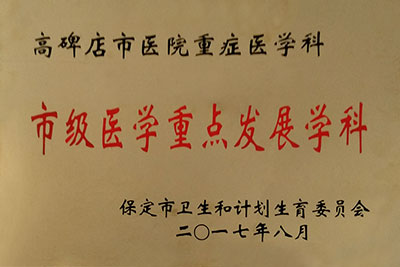 高碑店市医院重症医学科
市级医学重点发展学科
保定市卫生和计划生育委员会
二〇一七年八月